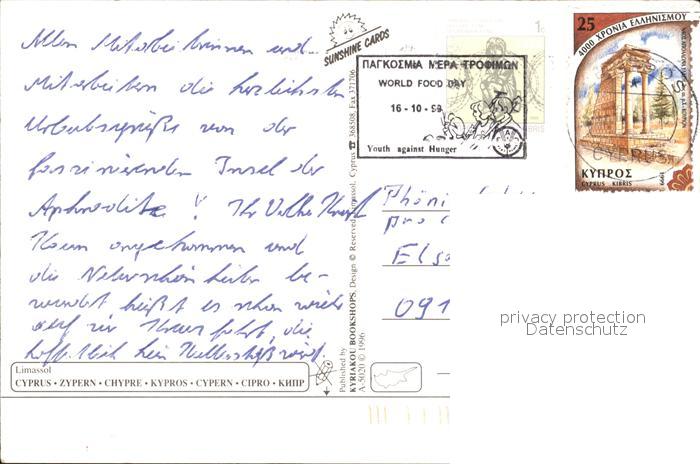 Allen Mitarbeiterinnen und
Mitarbeitern die herzlichsten
Urlaubsgrüße von der
faszinierenden Insel der
Aphrodite !
Kaum angekommen und
die Naturschönheiten be-
wundert heißt es schon wieder
auf zur , die
hoffentlich kein wird.
Limassol
CYPRUS • ZYPERN • CHYPRE • KYPROS • CYPERN • CIPRO • КИПР
SUNSHINE CARDS
Published by
KYRIAKOU BOOKSHOPS, Design © Reserved Limassol, Cyprus 368508, Fax 371706
A-5020 © 1996
1c
ΠΑΓΚΟΣΜΙΑ ΜΕΡΑ ΤΡΟΦΙΜΩΝ
WORLD FOOD DAY
16 - 10 - 99
Youth against Hunger
25
4000 ΧΡΟΝΙΑ ΕΛΛΗΝΙΣΜΟΥ
CYPRUS
ΚΥΠΡΟΣ
CYPRUS KIBRIS
1999
Phöni
Els
091
privacy protection
Datenschutz